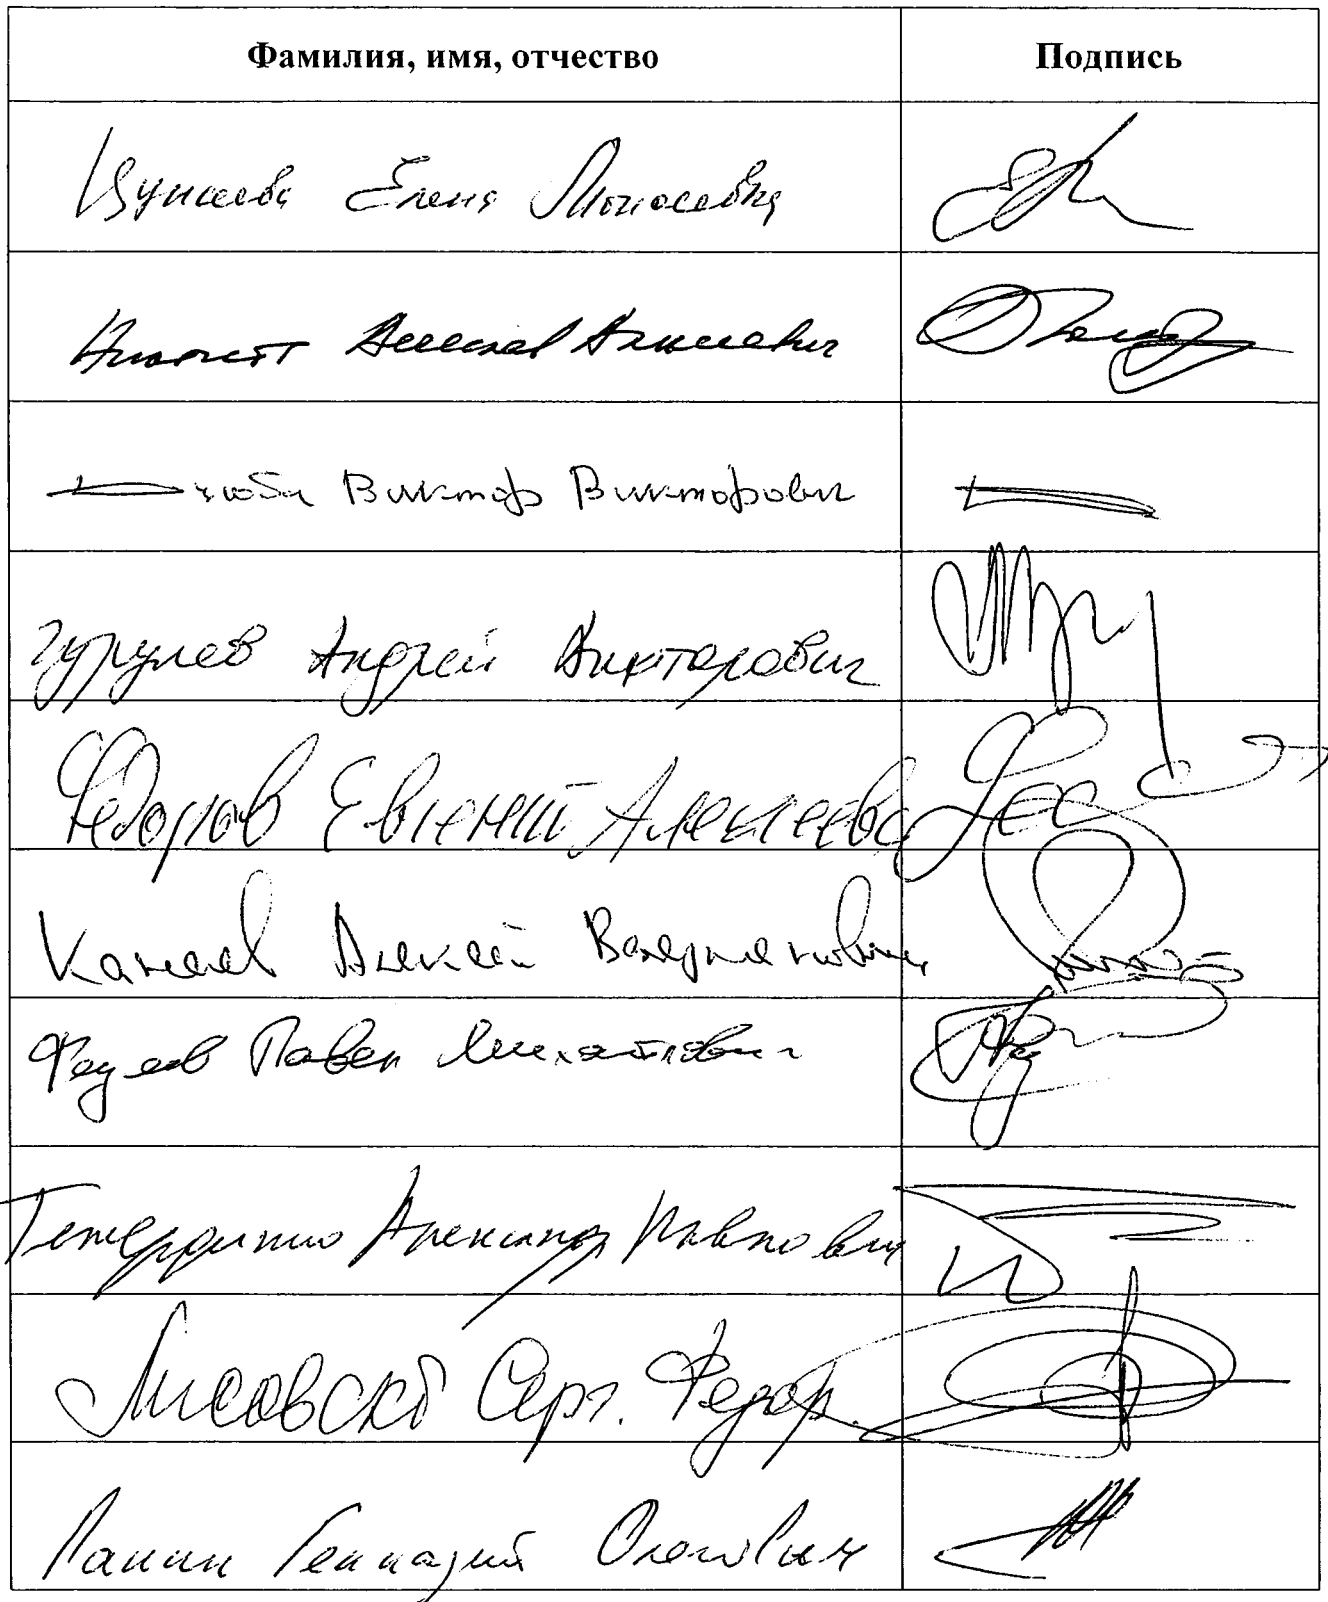 Фамилия, имя, отчество Подпись
Цунаева Елена Моисеевна
Алексей
Дзюба Виктор Викторович
Гурулев Андрей Викторович
Федоров Евгений Алексеев
Канаев Алексей Валерианович
Федяев Павел Михайлович
Тетердинко Александр Павлович
Лисовский Серг. Федор.
Панин Геннадий Олегович